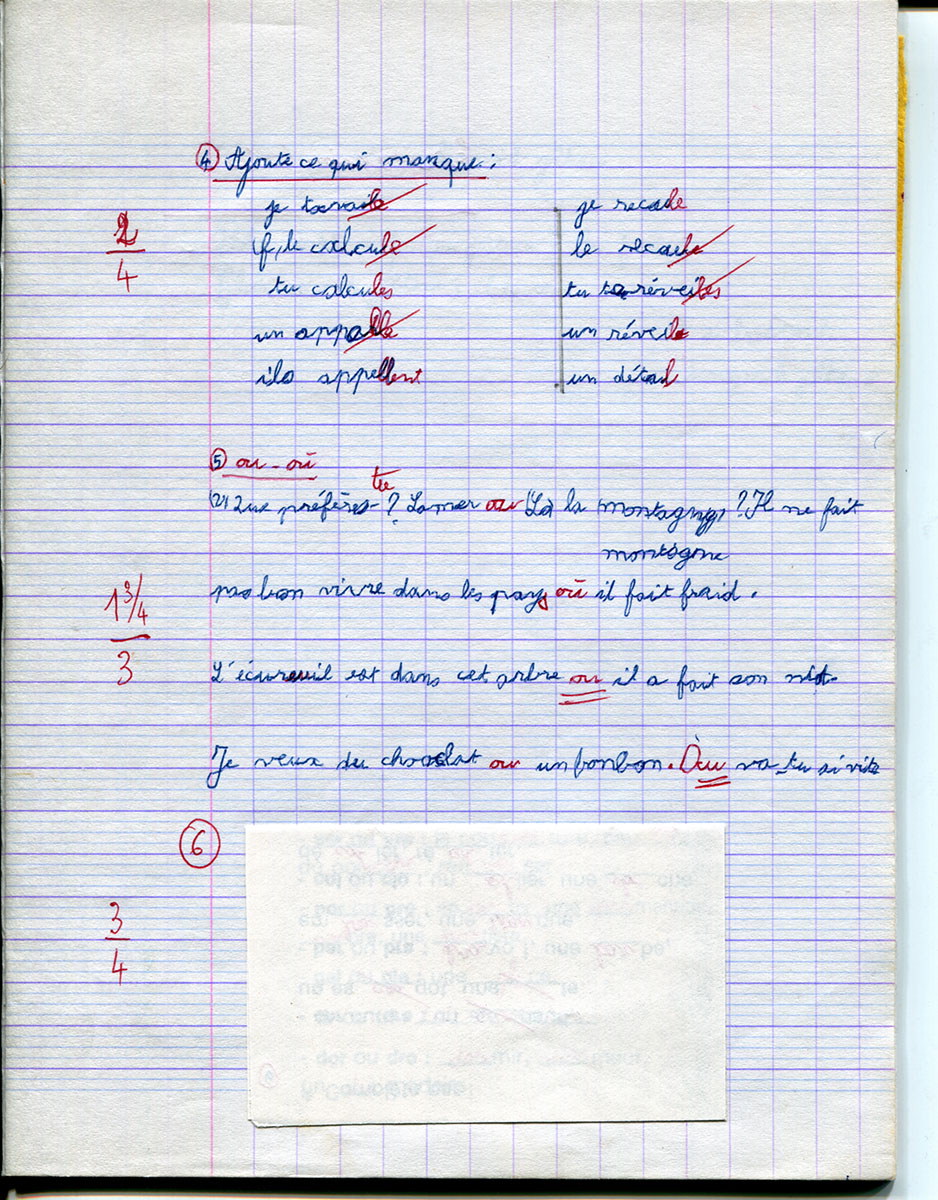 4 Ajoute ce qui manque :
2/4
je travaile je recade
le calcule le recaule
tu calcules tu te réveilles
un appelle un réveile
ils appellent un détail
5 ou - où
tu
(2) Que préfères - ? La mer ou (La) la montagny ? Il ne fait
montagne
1 3/4 / 3
pas bon vivre dans les pays où il fait fraid.
L'écureuil est dans cet arbre ou il a fait son nid.
Je veux du chocolat ou un bonbon. Òu va-tu si vite
6
3/4